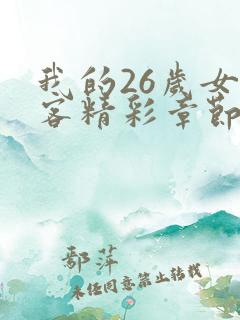 我的26岁女
客精彩章节
鄢萍
未经同意禁止转载